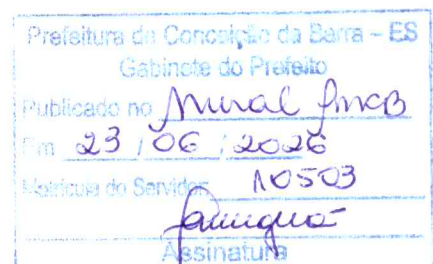 Prefeitura de Conceição da Barra – ES
Gabinete do Prefeito
Publicado no Mural PMCB
Em 23 / 06 / 2026
Matrícula do Servidor 10503
Assinatura